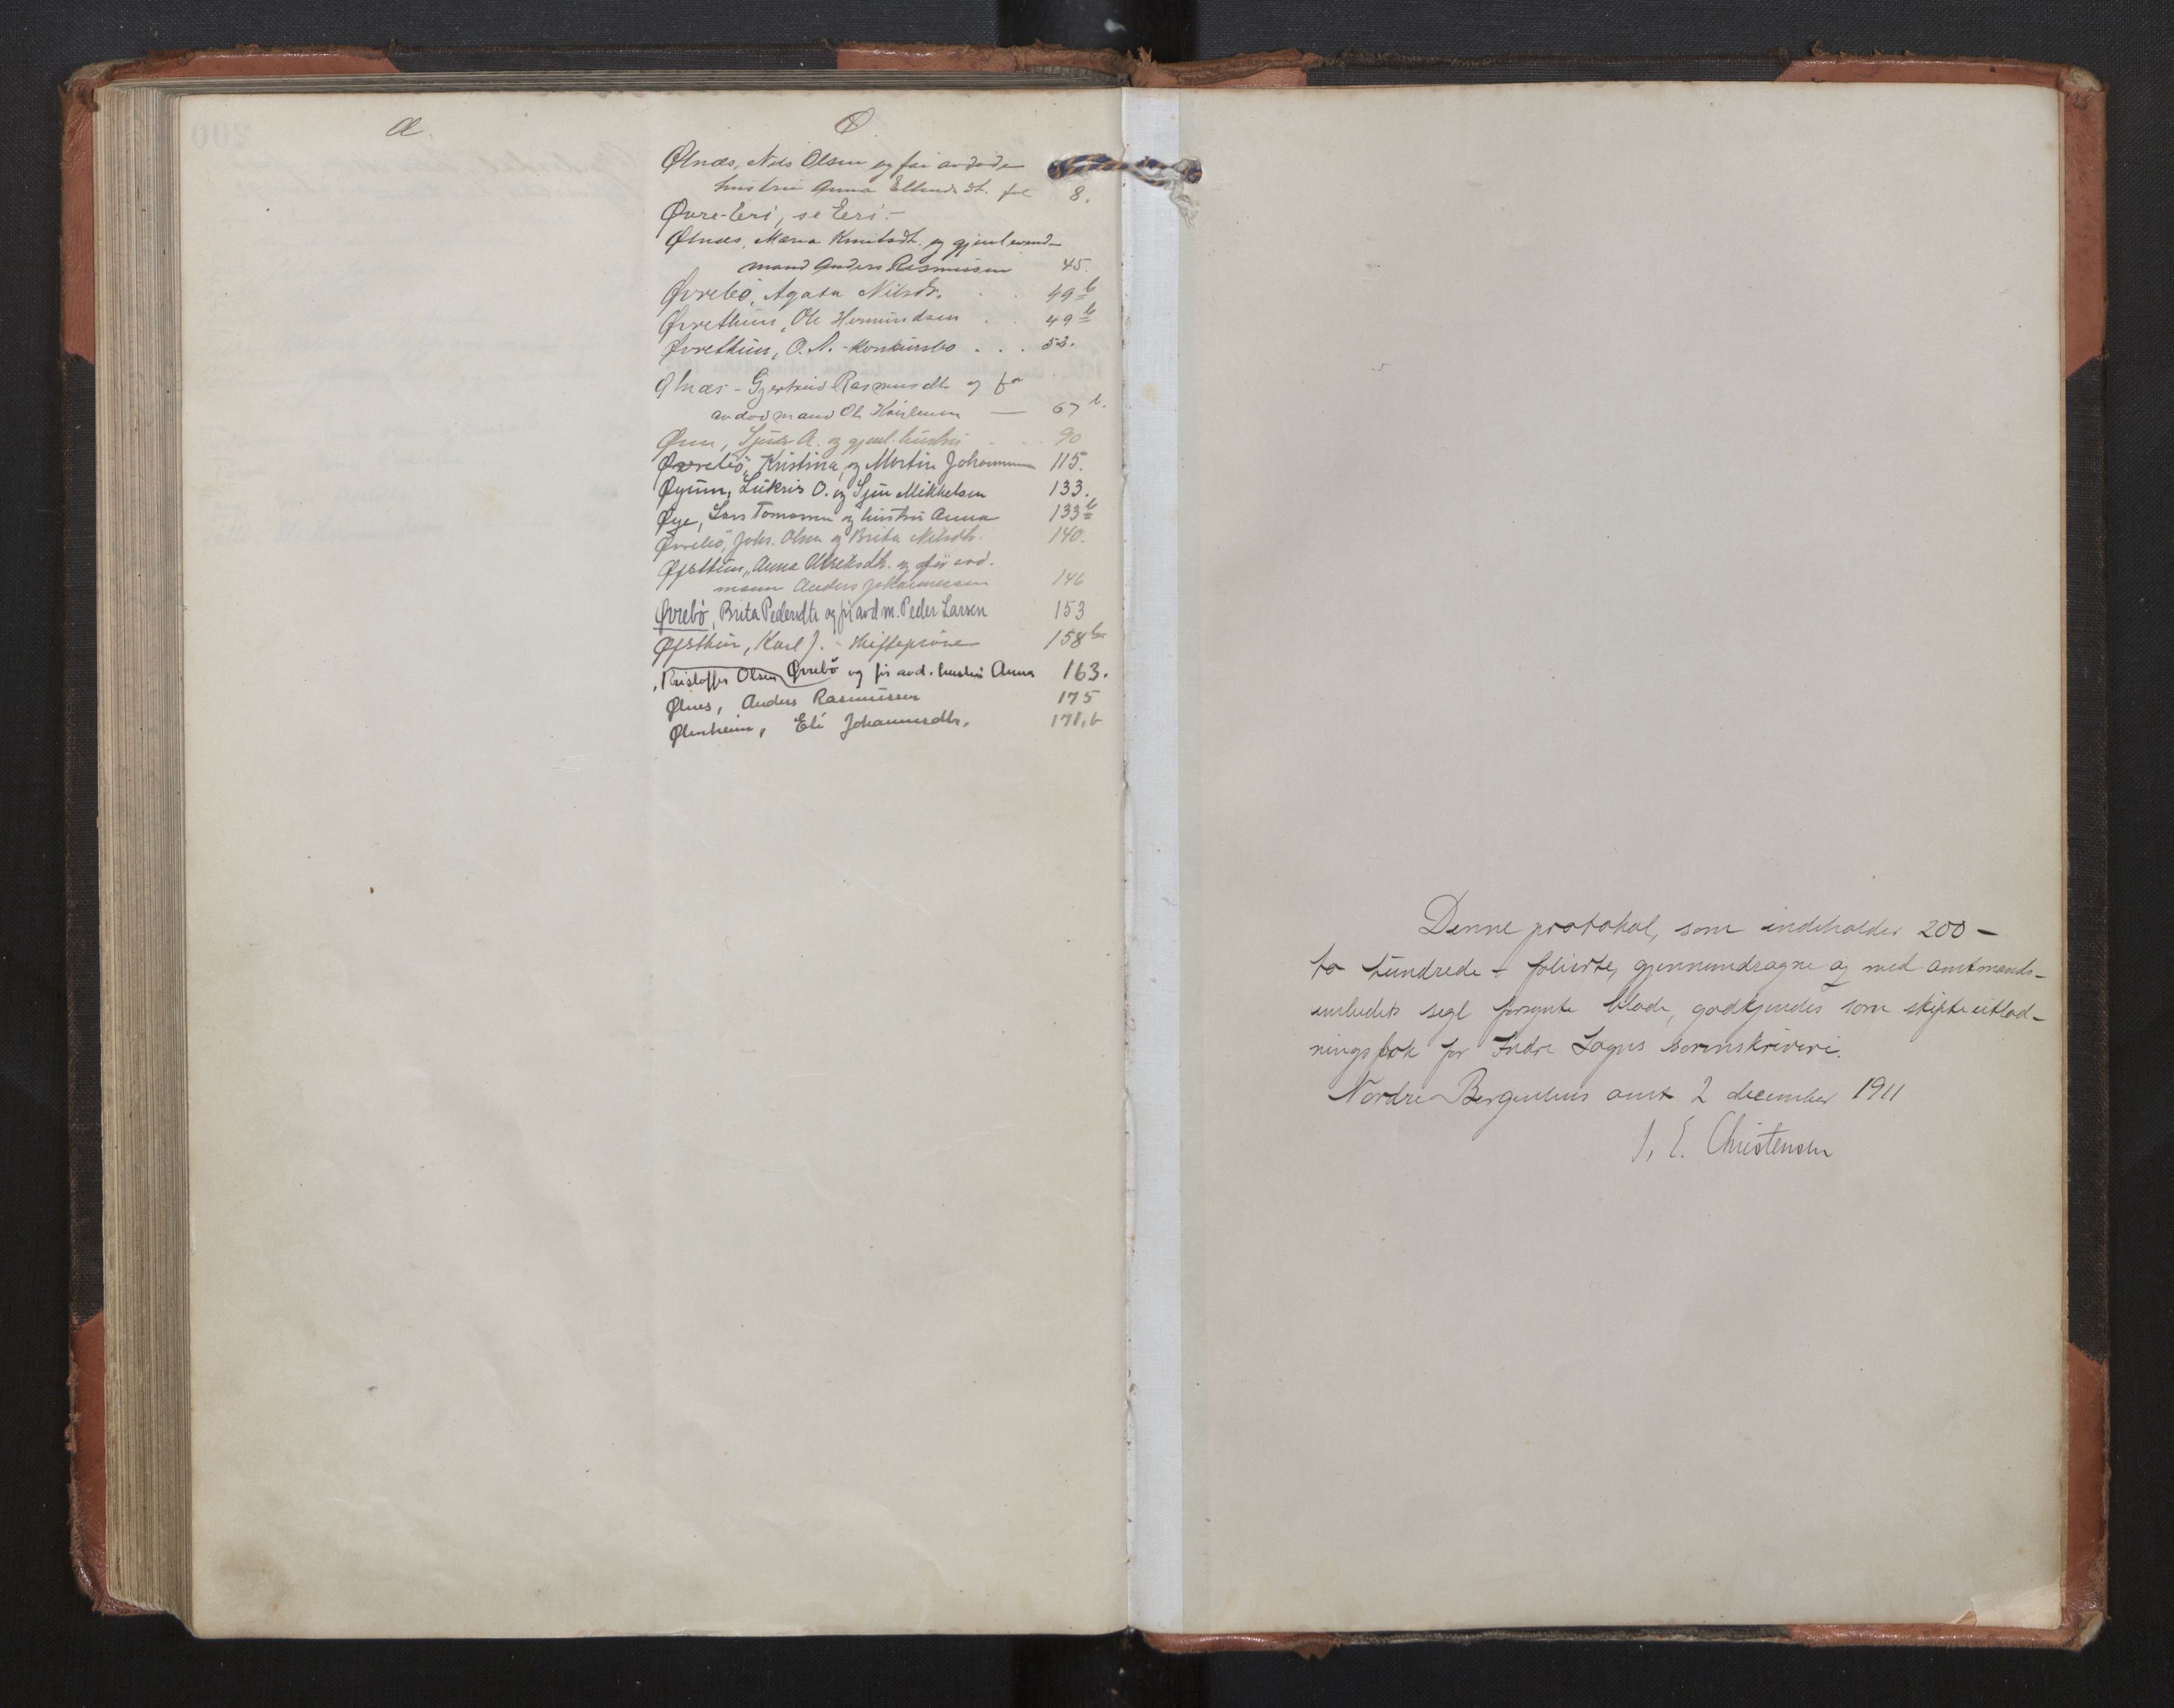 Æ
Ø
Ølnæs, Nils Olsen og før avdøde
hustru Anna Ellends dt. fol 8.
Øvre-Eri, se Eri.-
Ølnæs, Maria Knutsdt. og gjenlevend-
mand Anders Rasmussen 45.
Øvrebö, Agata Nilsdt. . . 49 b
Øvrethun, Ole Hermundsen . . 49 b
Øvrethun, O. N. - konkursbo . . . 53.
Ølnæs - Gjertrud Rasmusdtr og før
avdød mand Ole — 67 b.
Sjur A. og gjenl. hustru . . . 90
Øvrebö, Kristina og Martin Johannessen 115.
Øyum, Lukris O. og Sjur Mikkelsen 133.
Øye, Lars Tomassen og hustru Anna 133 b
Øvrebö, Johs. Olsen og Brita Nilsdtr. 140.
Øfsthun, Anna Olreksdtr. og før avd.
mann Anders Johannessen 146
Øvrebö, Brita Pedersdtr og før avd m. Peder Larsen 153
Øfsthun, Karl J. - skifteprøve 158 b
Kristoffer Olsen Øvrebö og før avd. hustru Anna 163.
Ølnes, Anders Rasmussen 175
Eli Johannesdtr. 178, b
Denne protokol, som indeholder 200 -
to hundrede - folierte, gjennemdragne og med amtmands-
embedets segl forsynte blade, godkjendes som skifteutlod-
ningsbok for Indre Sogns sorenskriveri.
Nordre Bergenhus amt 2 december 1911
J. E. Christensen